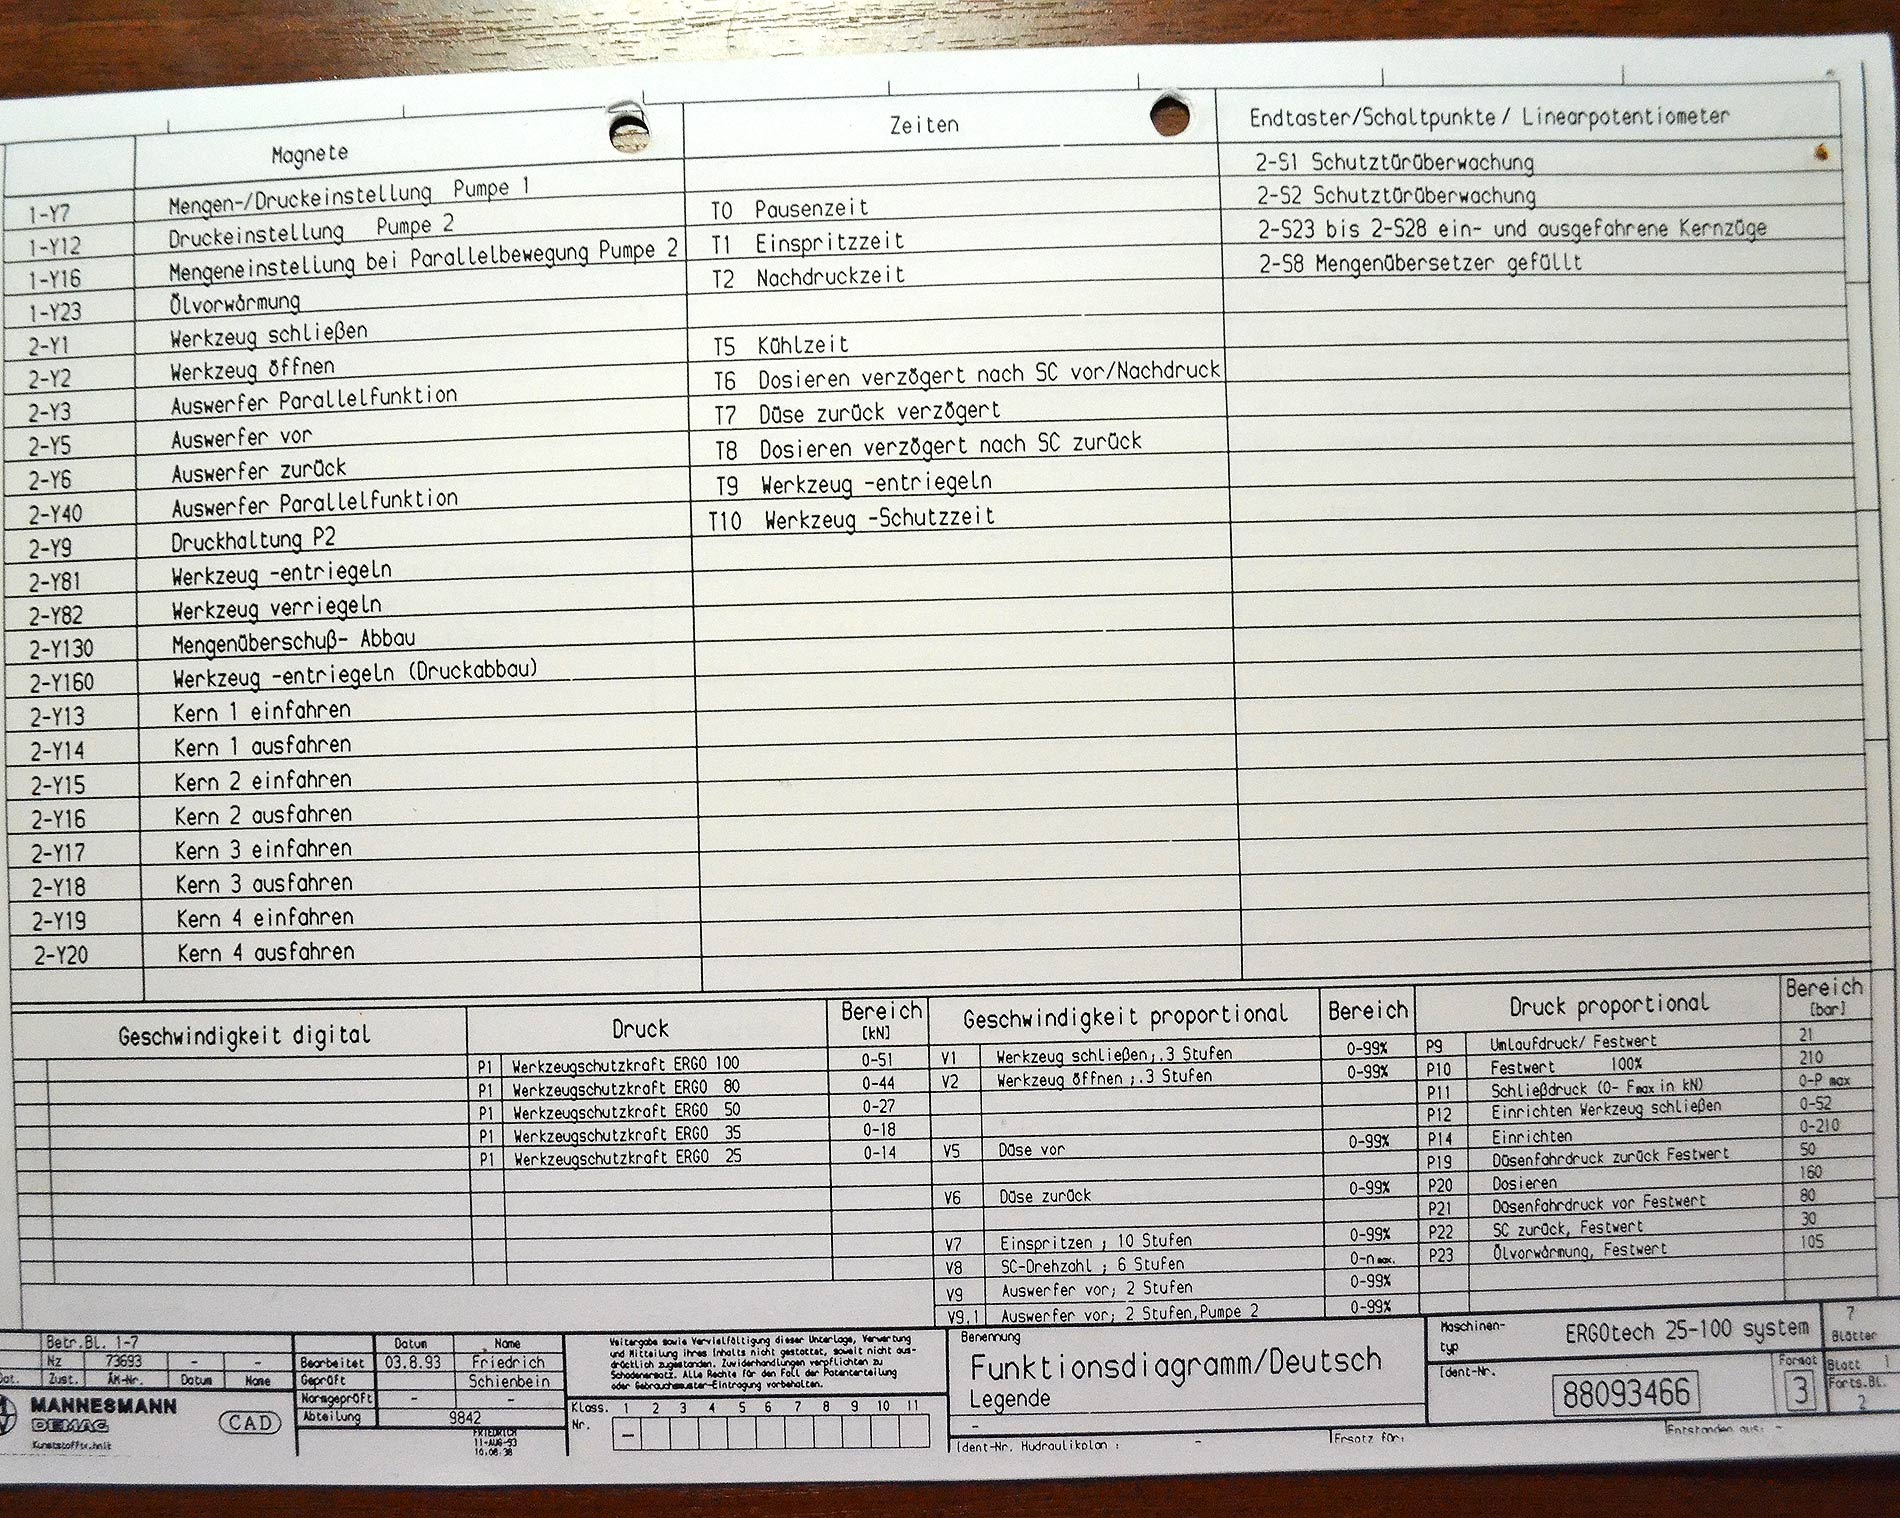 Magnete
Zeiten
Endtaster/Schaltpunkte/ Linearpotentiometer
1-Y7 Mengen-/Druckeinstellung Pumpe 1
1-Y12 Druckeinstellung Pumpe 2
1-Y16 Mengeneinstellung bei Parallelbewegung Pumpe 2
1-Y23 Ölvorwärmung
2-Y1 Werkzeug schließen
2-Y2 Werkzeug öffnen
2-Y3 Auswerfer Parallelfunktion
2-Y5 Auswerfer vor
2-Y6 Auswerfer zurück
2-Y40 Auswerfer Parallelfunktion
2-Y9 Druckhaltung P2
2-Y81 Werkzeug -entriegeln
2-Y82 Werkzeug verriegeln
2-Y130 Mengenüberschuß- Abbau
2-Y160 Werkzeug -entriegeln (Druckabbau)
2-Y13 Kern 1 einfahren
2-Y14 Kern 1 ausfahren
2-Y15 Kern 2 einfahren
2-Y16 Kern 2 ausfahren
2-Y17 Kern 3 einfahren
2-Y18 Kern 3 ausfahren
2-Y19 Kern 4 einfahren
2-Y20 Kern 4 ausfahren
T0 Pausenzeit
T1 Einspritzzeit
T2 Nachdruckzeit
T5 Kühlzeit
T6 Dosieren verzögert nach SC vor/Nachdruck
T7 Düse zurück verzögert
T8 Dosieren verzögert nach SC zurück
T9 Werkzeug -entriegeln
T10 Werkzeug -Schutzzeit
2-S1 Schutztürüberwachung
2-S2 Schutztürüberwachung
2-S23 bis 2-S28 ein- und ausgefahrene Kernzüge
2-S8 Mengenübersetzer gefüllt
Geschwindigkeit digital
Druck
Bereich
[kN]
P1 Werkzeugschutzkraft ERGO 100 0-51
P1 Werkzeugschutzkraft ERGO 80 0-44
P1 Werkzeugschutzkraft ERGO 50 0-27
P1 Werkzeugschutzkraft ERGO 35 0-18
P1 Werkzeugschutzkraft ERGO 25 0-14
Geschwindigkeit proportional
Bereich
V1 Werkzeug schließen;.3 Stufen 0-99%
V2 Werkzeug öffnen ;.3 Stufen 0-99%
V5 Düse vor 0-99%
V6 Düse zurück 0-99%
V7 Einspritzen ; 10 Stufen 0-99%
V8 SC-Drehzahl ; 6 Stufen 0-n max.
V9 Auswerfer vor; 2 Stufen 0-99%
V9.1 Auswerfer vor; 2 Stufen,Pumpe 2 0-99%
Druck proportional
Bereich
[bar]
P9 Umlaufdruck/ Festwert 21
P10 Festwert 100% 210
P11 Schließdruck (0- Fmax in kN) 0-P max
P12 Einrichten Werkzeug schließen 0-52
P14 Einrichten 0-210
P19 Düsenfahrdruck zurück Festwert 50
P20 Dosieren 160
P21 Düsenfahrdruck vor Festwert 80
P22 SC zurück, Festwert 30
P23 Ölvorwärmung, Festwert 105
Betr.Bl. 1-7
Nz 73693 - -
Zust. ÄM-Nr. Datum Name
MANNESMANN
DEMAG
CAD
Datum Name
Bearbeitet 03.8.93 Friedrich
Geprüft Schienbein
Normgeprüft - -
Abteilung 9842
FRIEDRICH
11-AUG-93
Weitergabe sowie Vervielfältigung dieser Unterlage, Verwertung
und Mitteilung ihres Inhalts nicht gestattet, soweit nicht aus-
drücklich zugestanden. Zuwiderhandlungen verpflichten zu
Schadenersatz. Alle Rechte für den Fall der Patenterteilung
oder Gebrauchsmuster-Eintragung vorbehalten.
Klass. 1 2 3 4 5 6 7 8 9 10 11
Nr. -
Benennung
Funktionsdiagramm/Deutsch
Legende
-
Ident-Nr. Hydraulikplan : -
Ersatz für:
Entstanden aus: -
Maschinen-
typ
ERGOtech 25-100 system
Ident-Nr.
88093466
Format
3
7
Blätter
Blatt 1
Forts.Bl.
2